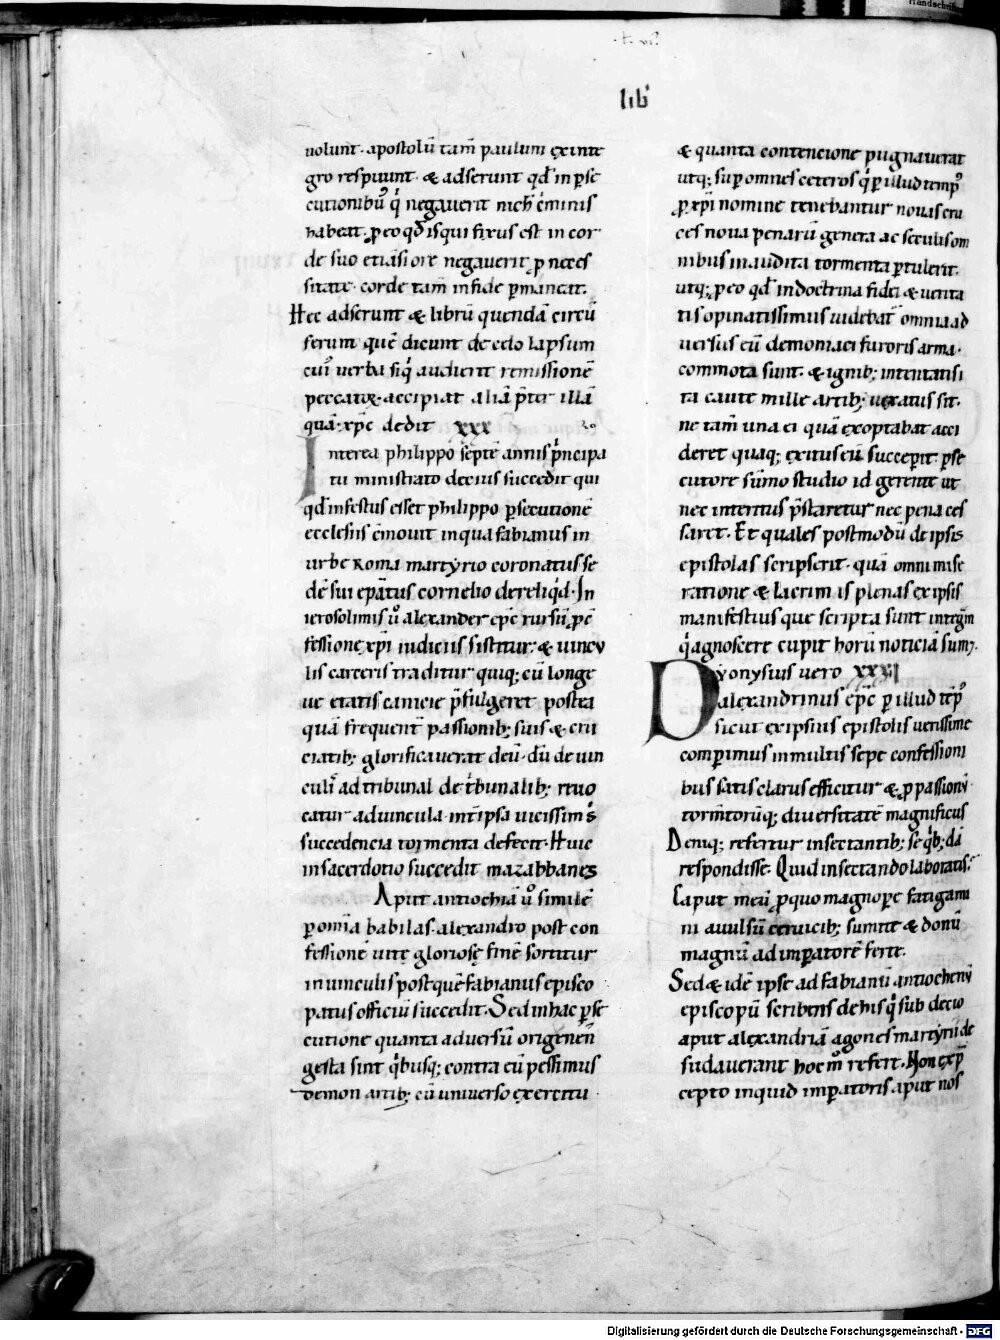 lib̅
uolunt. apostolū tam̅ paulum ex inte
gro respuunt. & adserunt qd̅ in p̲se
cutionibꝰ qͥ negauerit nich̅ c̅minis
habeat. ꝓ eo qd̅ is qui fixus est in cor
de suo etiāsi ore negauerit ꝓ neces
sitate. corde tam̅ in fide p̲maneat.
Hec adserunt & librū quendā circū
ferunt quē dicunt de celo lapsum
cuiꝰ uerba siqͥ audierit remissionē
peccatoꝝ accipiat aliā p̅ter illā
quā xp̅c dedit xxx
Interea philippo septē annis pͥncipa
tu ministrato decius succedit qui
qd̅ infestus esset philippo p̲secutionē
ecclesiis c̅mouit in qua fabianus in
urbe Roma martyrio coronatus se
dē sui ep̅atus cornelio dereliqͥd. In
ierosolimis u̅ alexander ep̅c rursū ꝓ c̅
fessione xp̅i iudiciis sistitur. & uincu
lis carceris traditur quiq; cū longe
ue etatis canicie p̅fulgeret postea
quā frequent̅ passionib; suis & cru
ciatib; glorificauerat deū. dū de uin
culiꝰ ad tribunal de tͥbunalib; reuo
catur ad uincula. int̅ ipsa uicissim s̅
succedencia tormenta defecit. Huic
in sacerdotio succedit mazabbanes
Aput antiochiā u̅o similē
p̲ om̅ia babilas alexandro post con
fessionē uitę gloriosę finē sortitur
in uinculis post quē fabianus episco
patus officiū succedit. Sed in hac p̲se
cutione quanta aduersū origenēn
gesta sint qͥbusq; contra eū pessimus
demon artib; cū uniuerso exercitu
& quanta contencione pugnauerat
utq; sup̲ omnes ceteros qͥ p̲ illud tempꝰ
ꝓ xp̅i nomine tenebantur nouas cru
ces noua penarū genera ac seculis om
nibus inaudita tormenta p̲tulerit.
utq; ꝓ eo qd̅ in doctrina fidei & uerita
tis opinatissimus uidebat̅ omnia ad
uersus eū demoniaci furoris arma
commota sunt. & ignib; intentatis i
ta caute mille artib; uexatus sit.
ne tam̅ una ei quā exoptabat acci
deret quaq; exitus cū succep̲it. p̲se
cutore sūmo studio id gerente ut
nec interitus p̅staretur nec pena ces
saret. Et quales postmodū de ipsis
epistolas scripserit. quā omni mise
ratione & lacrimis plenas ex ipsis
manifestius que scripta sunt integ̅m
qͥ agnoscere cupit horū noticiā sum;
Dyonysius uero xxxI
alexandrinus ep̅c p̲ illud tēpꝰ
sicut ex ipsius epistolis uerissime
comp̲imus in multis sepe confessioni
bus satis clarus efficitur & ꝓ passionū
torm̅torūq; diuersitatē magnificus
Deniq; refertur insectantib; se qͥb;dā
respondisse. Quid insectando laboratis?
Caput meū ꝓ quo magnop̲e fatigami
ni auulsū ceruicib; sumite & donū
magnū ad imp̲atorē ferte.
Sed & idē ipse ad fabianū antiochenū
episcopū scribens de his qͥ sub decio
aput alexandriā agones martyrii de
sudauerant hoc mͦ refert. Non ex p̅
cepto inquid imp̲atoris aput nos
Digitalisierung gefördert durch die Deutsche Forschungsgemeinschaft - DFG